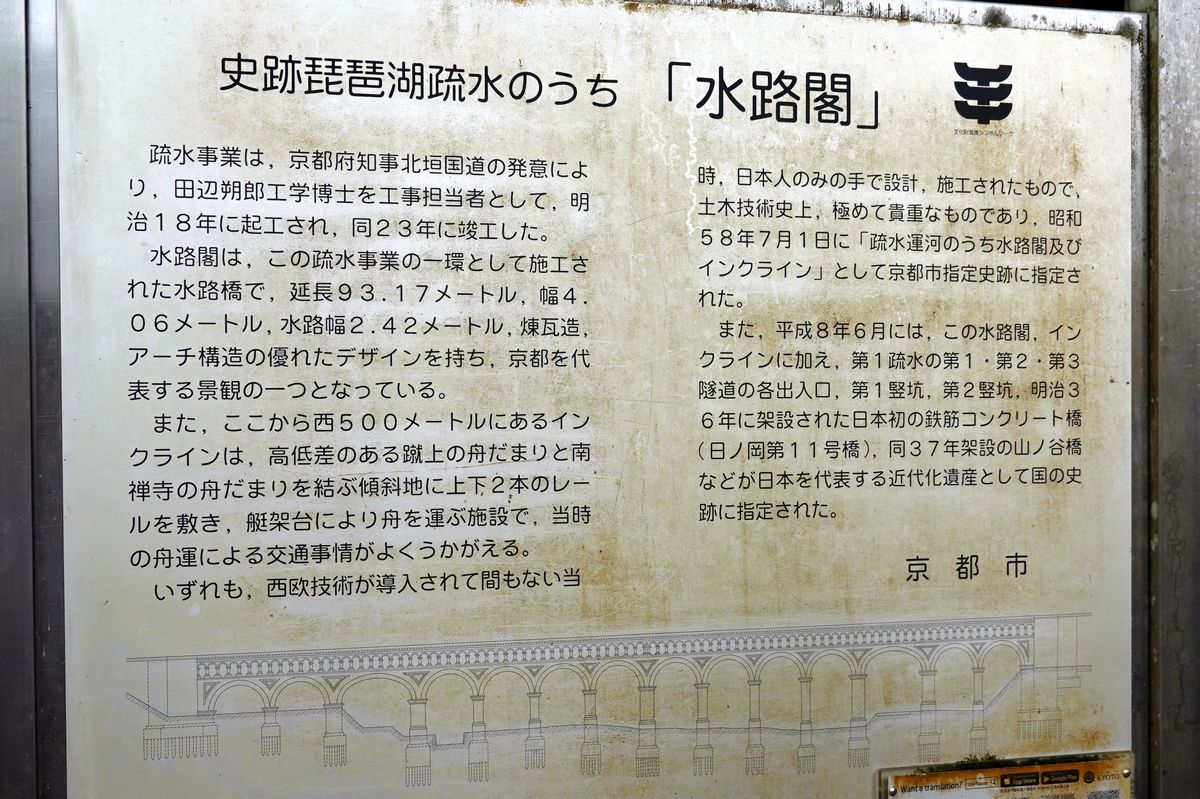 史跡琵琶湖疏水のうち 「水路閣」
文化財愛護シンボルマーク
疏水事業は，京都府知事北垣国道の発意によ
り，田辺朔郎工学博士を工事担当者として，明
治１８年に起工され，同２３年に竣工した。
水路閣は，この疏水事業の一環として施工さ
れた水路橋で，延長９３.１７メートル，幅４.
０６メートル，水路幅２.４２メートル，煉瓦造，
アーチ構造の優れたデザインを持ち，京都を代
表する景観の一つとなっている。
また，ここから西５００メートルにあるイン
クラインは，高低差のある蹴上の舟だまりと南
禅寺の舟だまりを結ぶ傾斜地に上下２本のレー
ルを敷き，艇架台により舟を運ぶ施設で，当時
の舟運による交通事情がよくうかがえる。
いずれも，西欧技術が導入されて間もない当
時，日本人のみの手で設計，施工されたもので，
土木技術史上，極めて貴重なものであり，昭和
５８年７月１日に「疏水運河のうち水路閣及び
インクライン」として京都市指定史跡に指定さ
れた。
また，平成８年６月には，この水路閣，イン
クラインに加え，第１疏水の第１・第２・第３
隧道の各出入口，第１竪坑，第２竪坑，明治３
６年に架設された日本初の鉄筋コンクリート橋
（日ノ岡第１１号橋），同３７年架設の山ノ谷橋
などが日本を代表する近代化遺産として国の史
跡に指定された。
京都市
Want a translation? App Store Google Play KYOTO